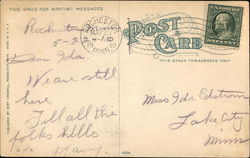 THIS SPACE FOR WRITING MESSAGES
POST CARD
THIS SPACE FOR ADDRESS ONLY
ROCHESTER
MINN.
Rochester
5-2
Dear Ida
We are still
here
Tell all the
folks hello
Miss Ida Edstrom
Lake City
Minn